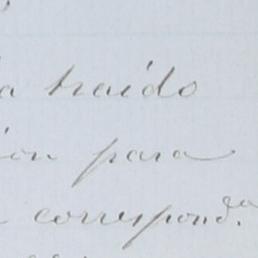 a traido
ion para
correspond.da